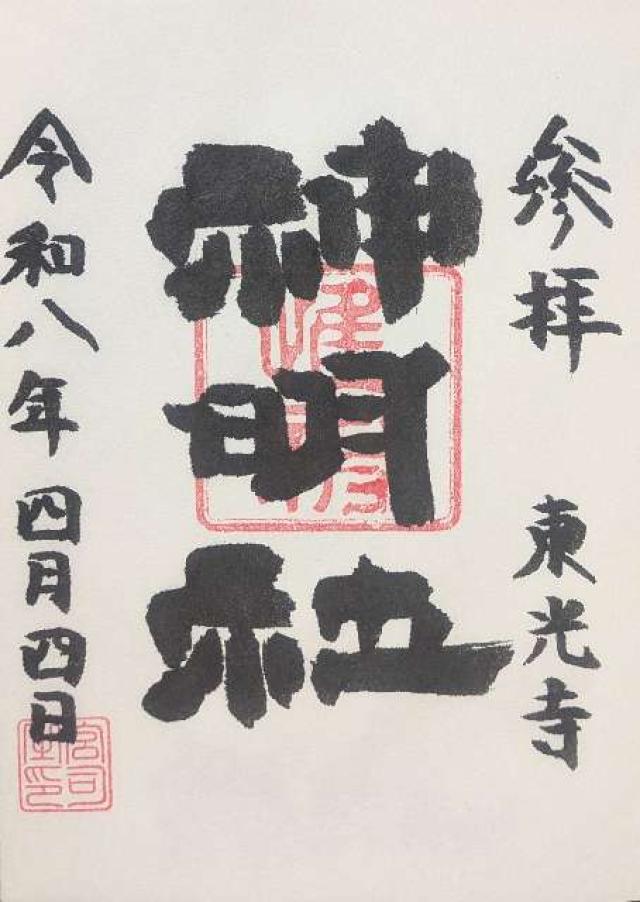 参拝
東光寺
神明社
令和八年四月四日